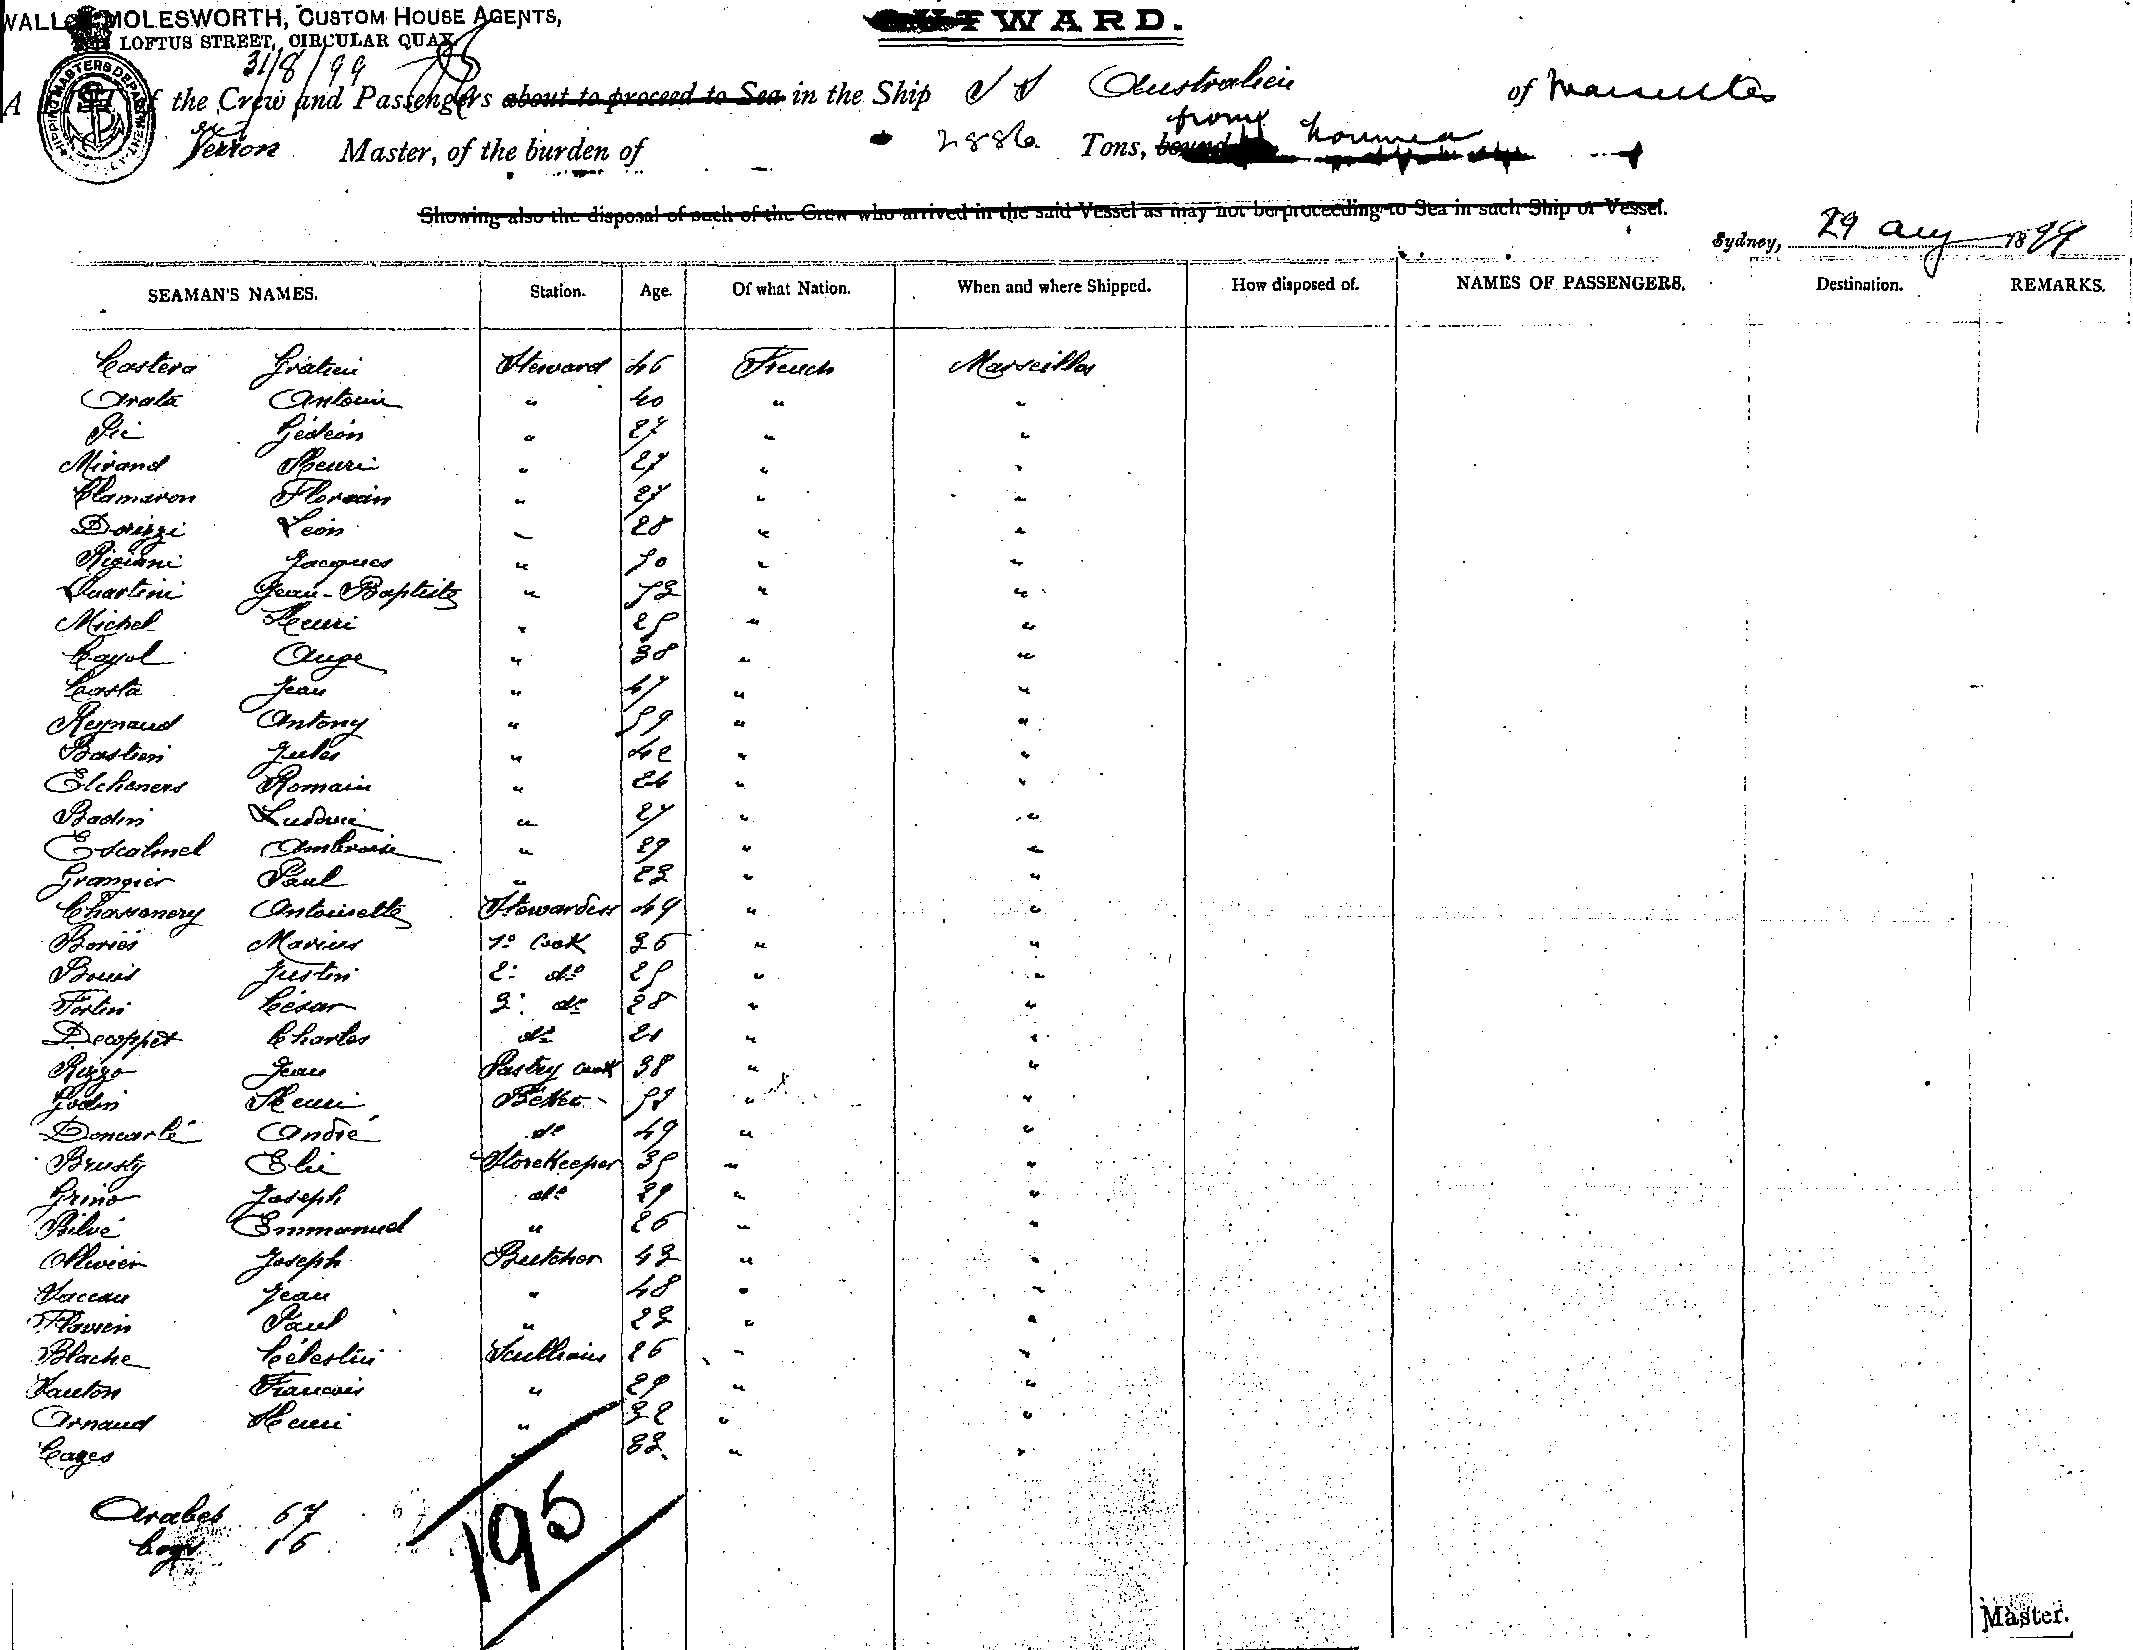 WALL MOLESWORTH, CUSTOM HOUSE AGENTS,
LOFTUS STREET, CIRCULAR QUAY
31/8/99
OUTWARD.
A of the Crew and Passengers about to proceed to Sea in the Ship SS Australien of Marseilles
Verron Master, of the burden of 2886 Tons, bound from Noumea
Showing also the disposal of such of the Crew who arrived in the said Vessel as may not be proceeding to Sea in such Ship or Vessel.
Sydney, 29 Aug 1899
SEAMAN'S NAMES. Station. Age. Of what Nation. When and where Shipped. How disposed of. NAMES OF PASSENGERS. Destination. REMARKS.
Castera Gratien Steward 46 French Marseilles
Arata Antoine " 40 " "
Pic Gédéon " 27 " "
Mirand Henri " 27 " "
Clamaron Florentin " 27 " "
Dorizzi Léon " 28 " "
Rigiani Jacques " 50 " "
Quartini Jean-Baptiste " 53 " "
Michel Henri " 25 " "
Cayol Ange " 38 " "
Costa Jean " 47 " "
Reynaud Antony " 59 " "
Bastien Jules " 42 " "
Elcheners Romain " 26 " "
Badin Ludovic " 27 " "
Escalmel Ambroise " 29 " "
Grangier Paul " 23 " "
Chassonery Antoinette Stewardess 49 " "
Boriès Marius 1º Cook 36 " "
Bouis Justin 2: dº 25 " "
Fortin César 3: dº 28 " "
Decoppet Charles dº 21 " "
Rizzo Jean Pastry cook 38 " "
Godin Henri " "
Doncarlé André dº 49 " "
Brusty Elie Storekeeper 35 " "
Grino Joseph dº 29 " "
Bilvé Emmanuel " 26 " "
Olivier Joseph Butcher 43 " "
Vaccau Jean " 48 " "
Flavien Paul " 23 " "
Blache Célestin Scullions 26 " "
Fauton Francois " 29 " "
Arnaud Henri " 32 " "
Cazes " 33 " "
Arabes 67
boys 16
195
Master.